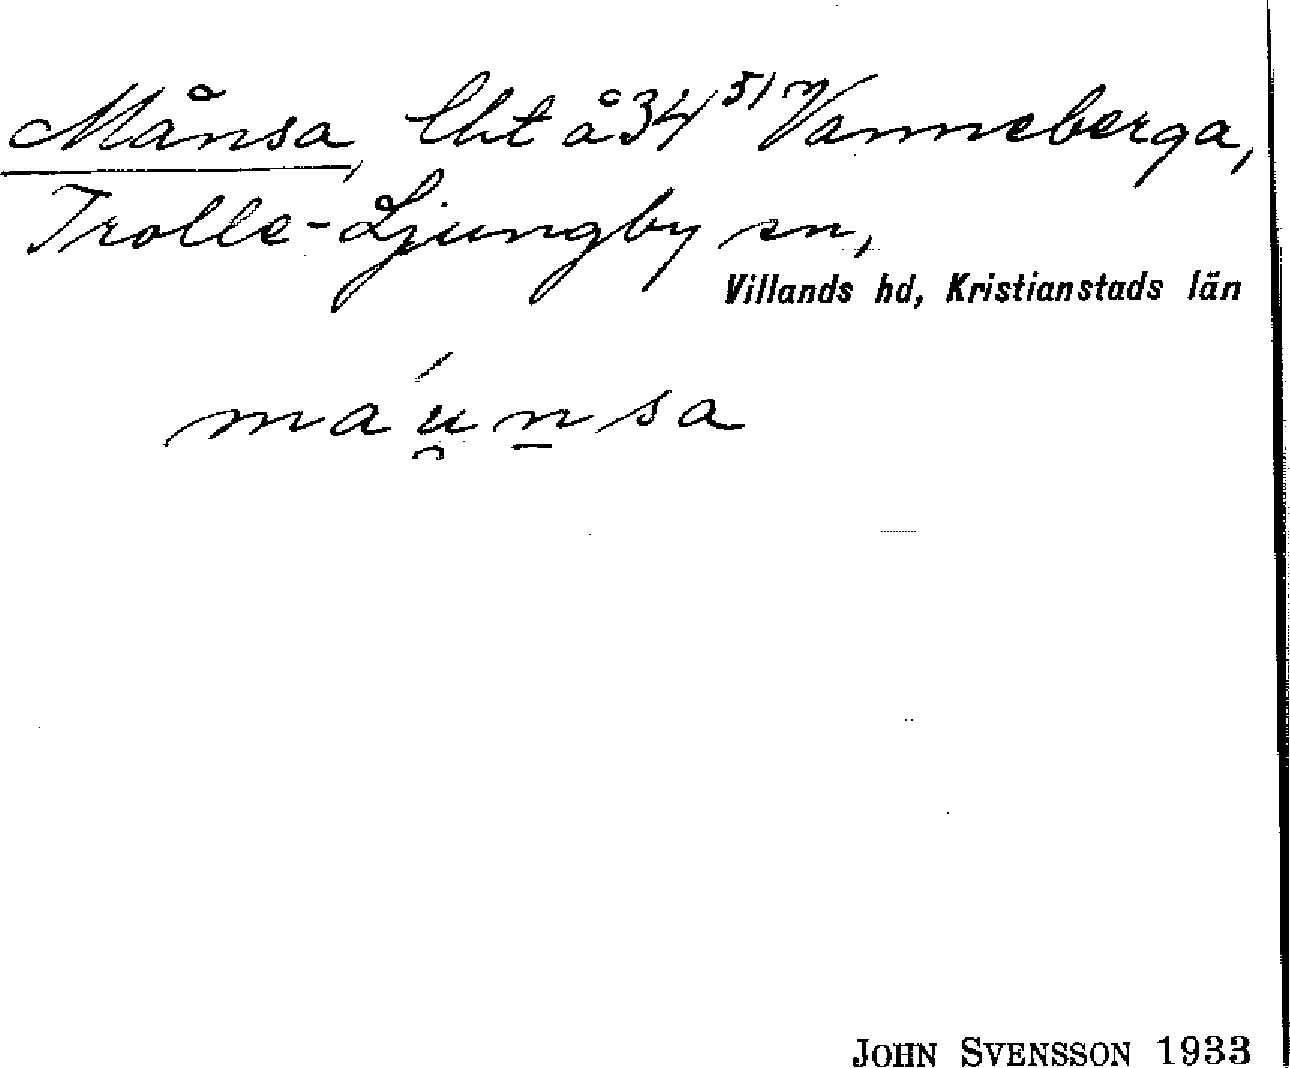 Månsa, lht å 34⁵¹ Vanneberga,
Trolle-Ljungby sn,
Villands hd, Kristianstads län
máu̯n̠sa
JOHN SVENSSON 1933